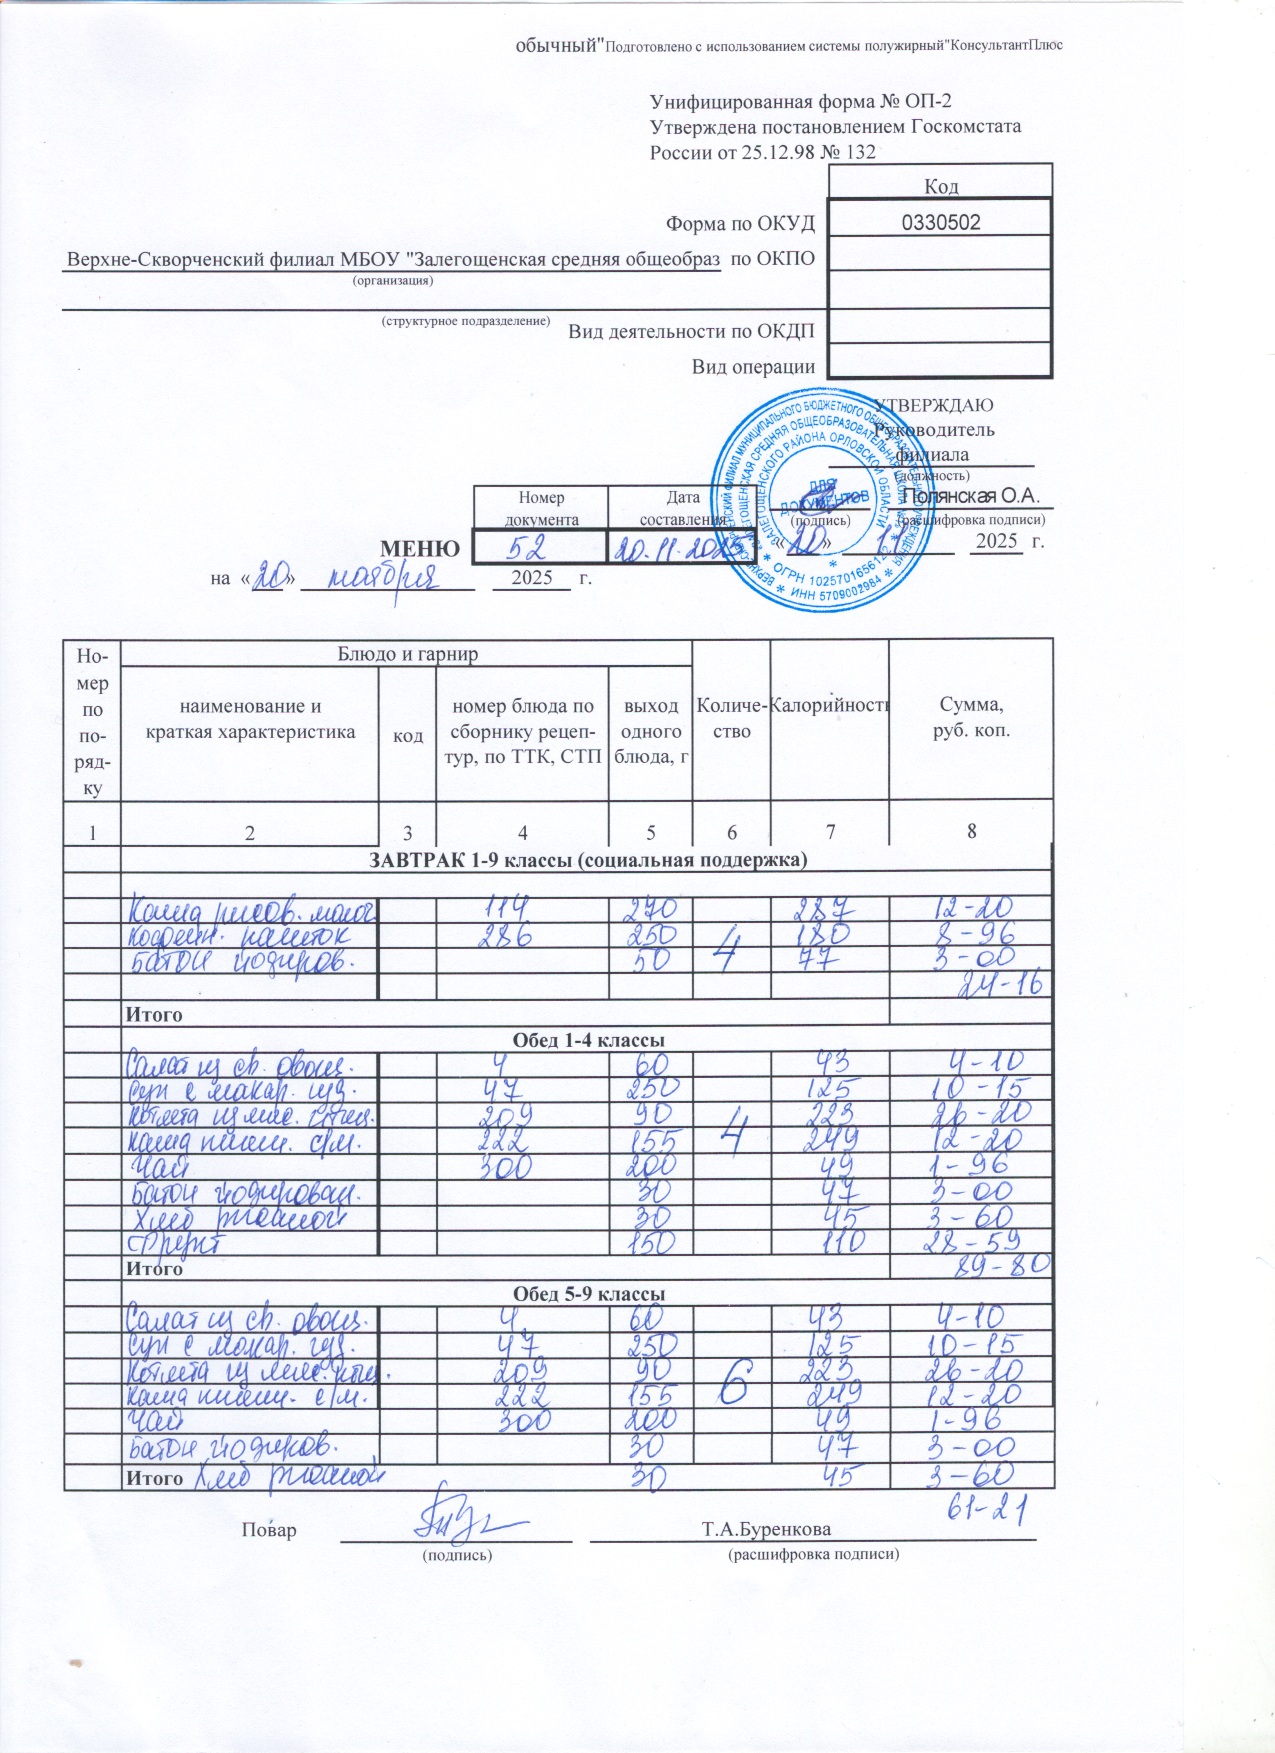 обычный"Подготовлено с использованием системы полужирный"КонсультантПлюс
Унифицированная форма № ОП-2
Утверждена постановлением Госкомстата
России от 25.12.98 № 132
Код
Форма по ОКУД 0330502
Верхне-Скворченский филиал МБОУ "Залегощенская средняя общеобраз по ОКПО
(организация)
(структурное подразделение)
Вид деятельности по ОКДП
Вид операции
УТВЕРЖДАЮ
Руководитель
филиала
(должность)
Полянская О.А.
(подпись) (расшифровка подписи)
«20» 11 2025 г.
ДЛЯ
ДОКУМЕНТОВ
ОГРН 1025701656122
ИНН 5709002984
Номер документа Дата составления
МЕНЮ 52 20.11.2025
на «20» ноября 2025 г.
Но-мер по по-ряд-ку Блюдо и гарнир Количе-ство Калорийность Сумма, руб. коп.
наименование и краткая характеристика код номер блюда по сборнику рецеп-тур, по ТТК, СТП выход одного блюда, г
1 2 3 4 5 6 7 8
ЗАВТРАК 1-9 классы (социальная поддержка)
Каша рисов. молоч 114 270 287 12-20
Кофейн. напиток 286 250 4 180 8-96
Батон йодиров. 50 77 3-00
24-16
Итого
Обед 1-4 классы
Салат из св. овощ. 4 60 43 4-10
Суп с макар. изд. 47 250 125 10-15
Котлета из мяс. птиц. 209 90 223 26-20
Каша пшен. с/м. 222 155 4 249 12-20
Чай 300 200 49 1-96
Батон йодирован. 30 47 3-00
Хлеб ржаной 30 45 3-60
Фрукт 150 110 28-59
Итого 89-80
Обед 5-9 классы
Салат из св. овощ. 4 60 43 4-10
Суп с макар. изд. 47 250 125 10-15
Котлета из мяс. птиц. 209 90 223 26-20
Каша пшен. с/м. 222 155 6 249 12-20
Чай 300 200 49 1-96
Батон йодиров. 30 47 3-00
Итого Хлеб ржаной 30 45 3-60
61-21
Повар Т.А.Буренкова
(подпись) (расшифровка подписи)